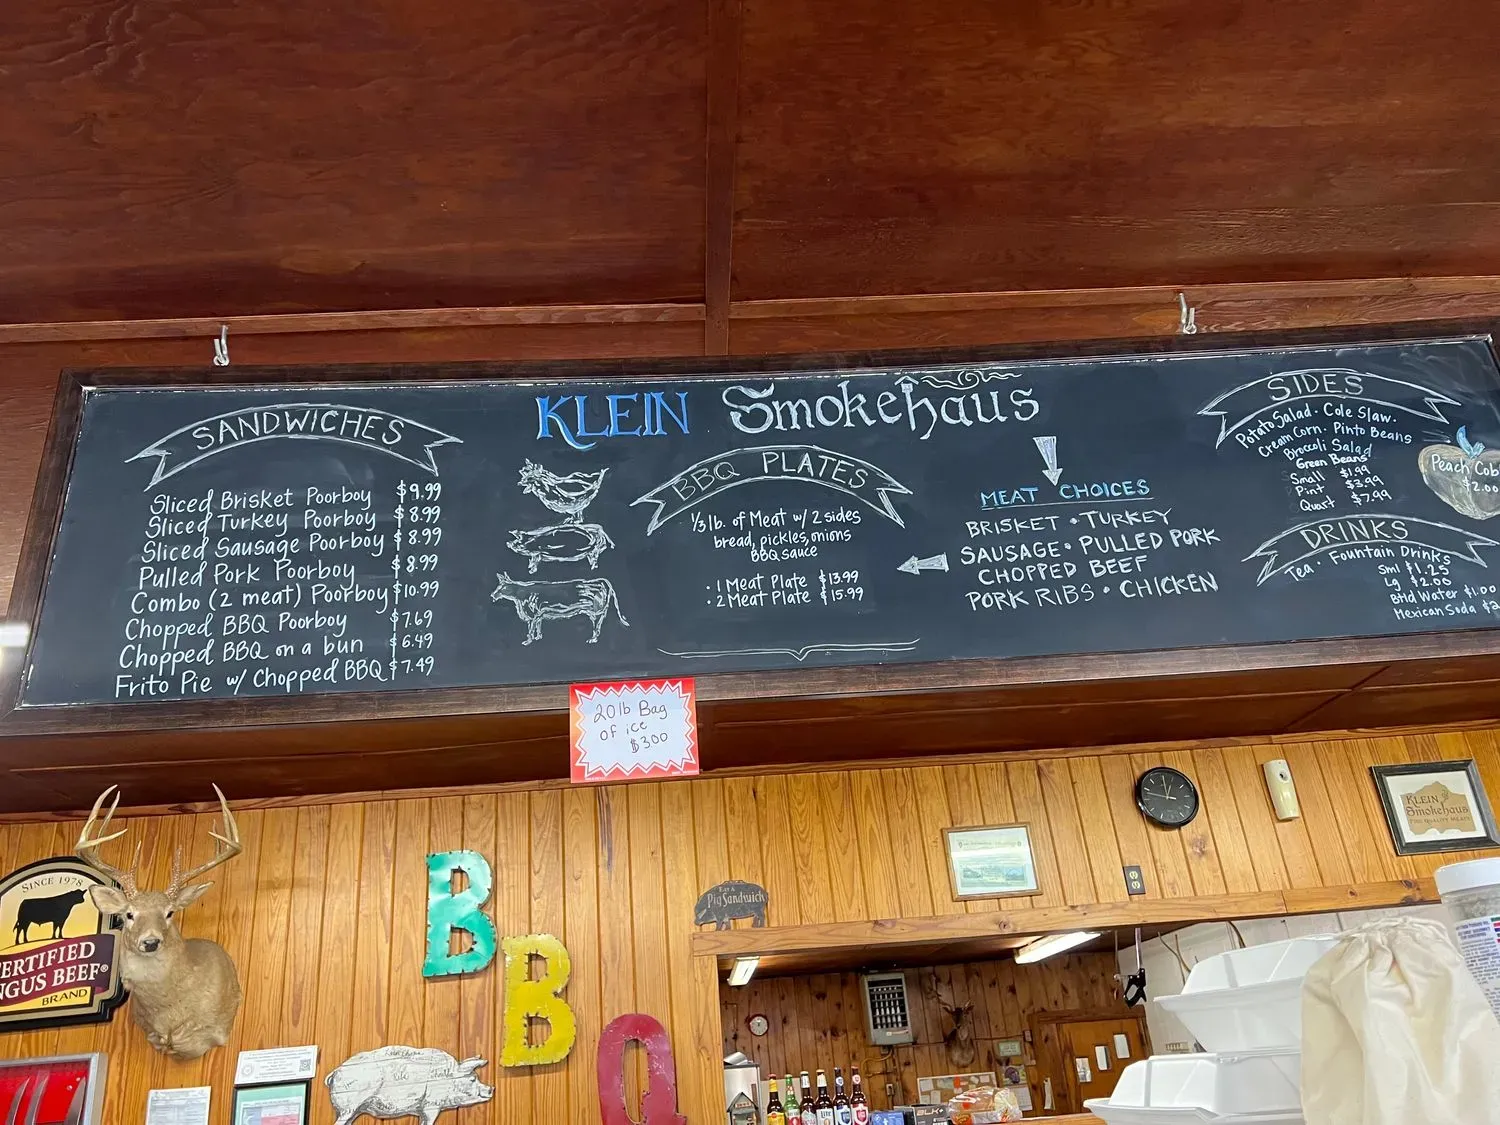 KLEIN Smokehaus
SANDWICHES
Sliced Brisket Poorboy $9.99
Sliced Turkey Poorboy $8.99
Sliced Sausage Poorboy $8.99
Pulled Pork Poorboy $8.99
Combo (2 meat) Poorboy $10.99
Chopped BBQ Poorboy $7.69
Chopped BBQ on a bun $6.49
Frito Pie w/ Chopped BBQ $7.49
BBQ PLATES
1/3 lb. of Meat w/ 2 sides
bread, pickles, onions
BBQ sauce
· 1 Meat Plate $13.99
· 2 Meat Plate $15.99
MEAT CHOICES
BRISKET · TURKEY
SAUSAGE · PULLED PORK
CHOPPED BEEF
PORK RIBS · CHICKEN
SIDES
Potato Salad · Cole Slaw ·
Cream Corn · Pinto Beans
Broccoli Salad
Green Beans
Small $1.99
Pint $3.99
Quart $7.99
Peach Cob
$2.00
DRINKS
Tea · Fountain Drinks
Sml $1.25
Lg $2.00
Btld Water $1.00
Mexican Soda $2
20lb Bag
of ice
$3.00
SINCE 1978
ERTIFIED
NGUS BEEF®
BRAND
BBQ
EAT A
Pig Sandwich
KLEIN
Smokehaus
FINE QUALITY MEATS